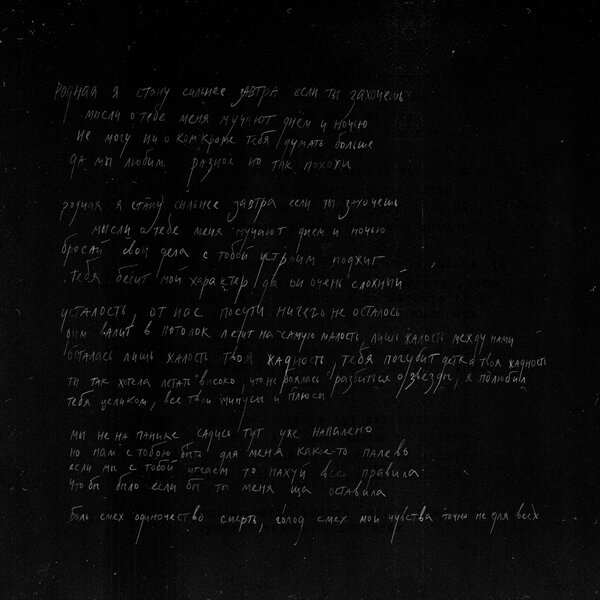 родная я стану сильнее завтра если ты захочешь
мысли о тебе меня мучают днём и ночью
не могу ни о ком кроме тебя думать больше
да мы любим разное но так похожи
родная я стану сильнее завтра если ты захочешь
мысли о тебе меня мучают днем и ночью
бросай свои дела с тобой устроим поджиг
тебя бесит мой характер да он очень сложный
усталость, от нас почти ничего не осталось
дым валит в потолок летит на самую малость, лишь жалость между нами
осталась лишь жалость твоя жадность тебя погубит детка твоя жадность
ты так хотела летать высоко, что не боялась разбиться о звёзды, я полюбил
тебя целиком, все твои минусы и плюсы
мы не на панике садись тут уже напалено
но нам с тобою быть для меня какое-то палево
если мы с тобой играем то нахуй все правила
что бы было если бы ты меня ща оставила
боль смех одиночество смерть, голод смех мои чувства точно не для всех